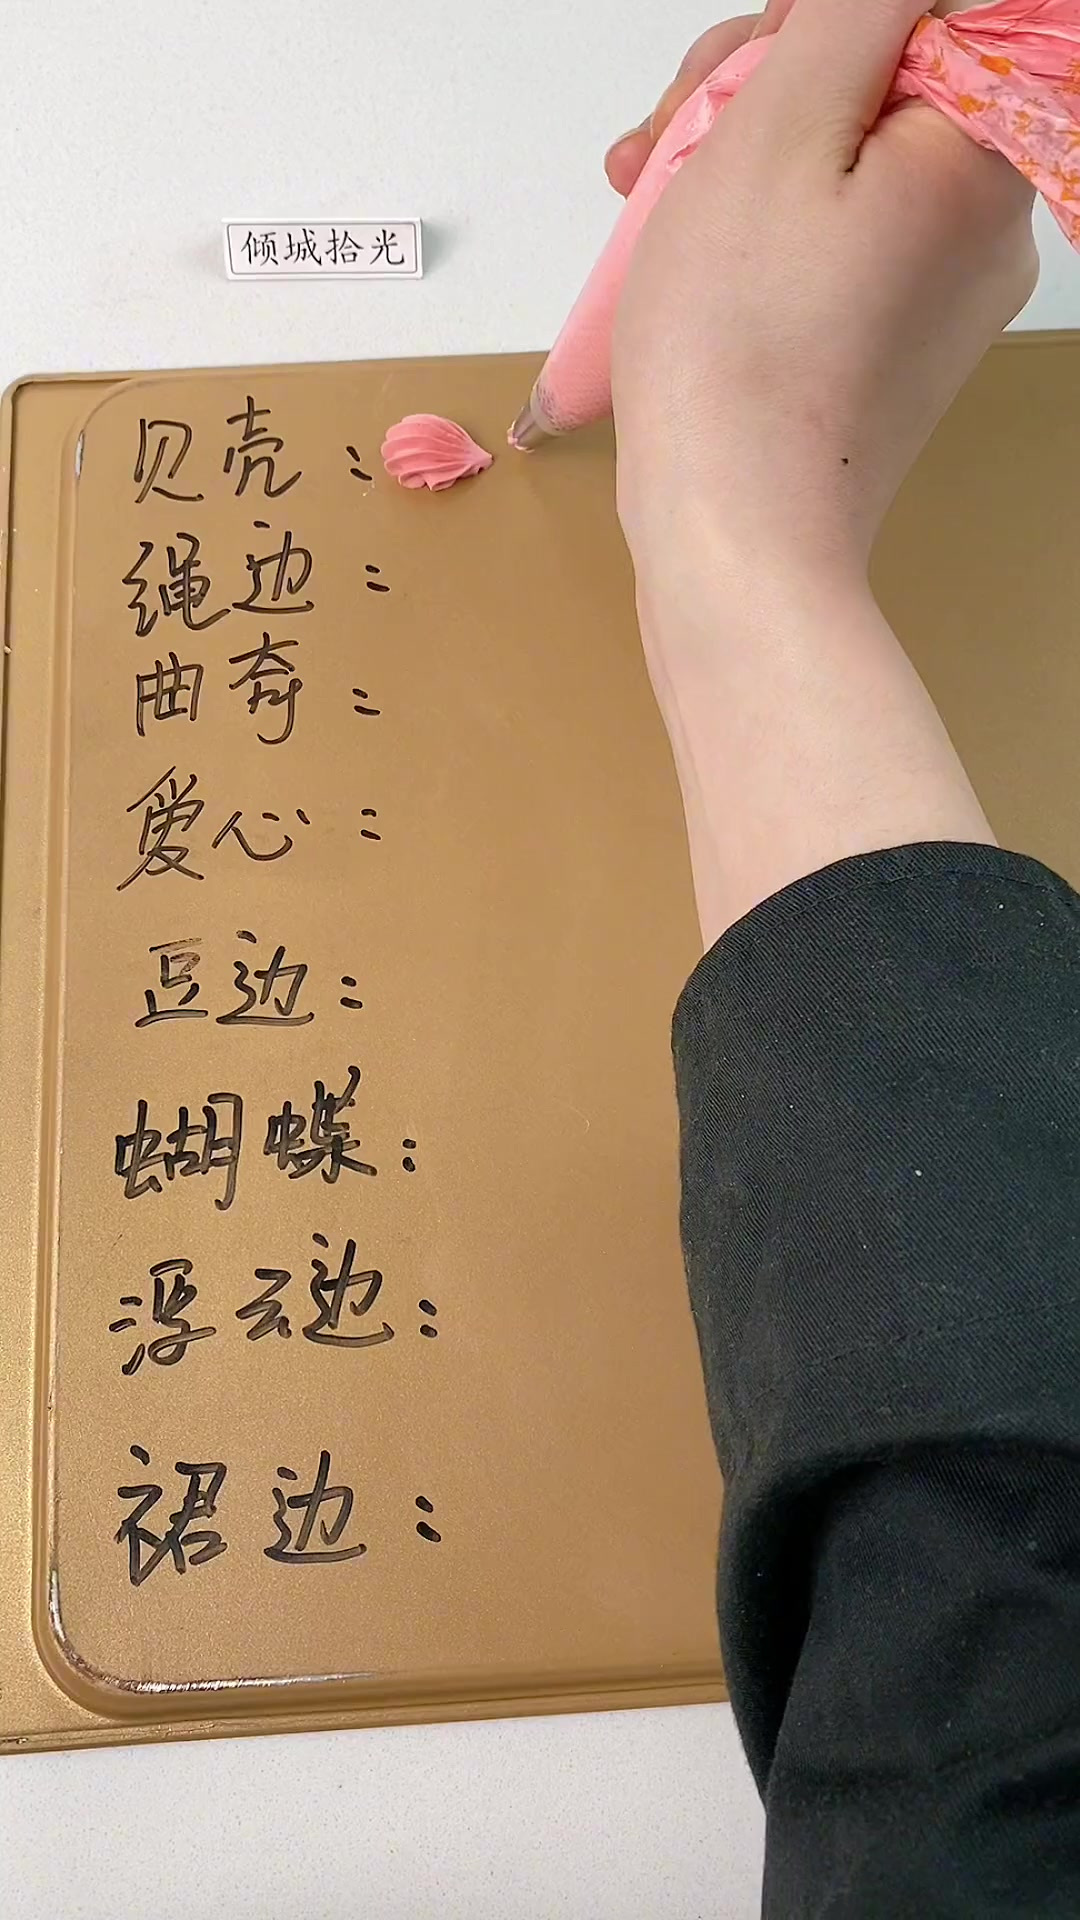 倾城拾光
贝壳：
绳边：
曲奇：
爱心：
豆边：
蝴蝶：
浮云边：
裙边：